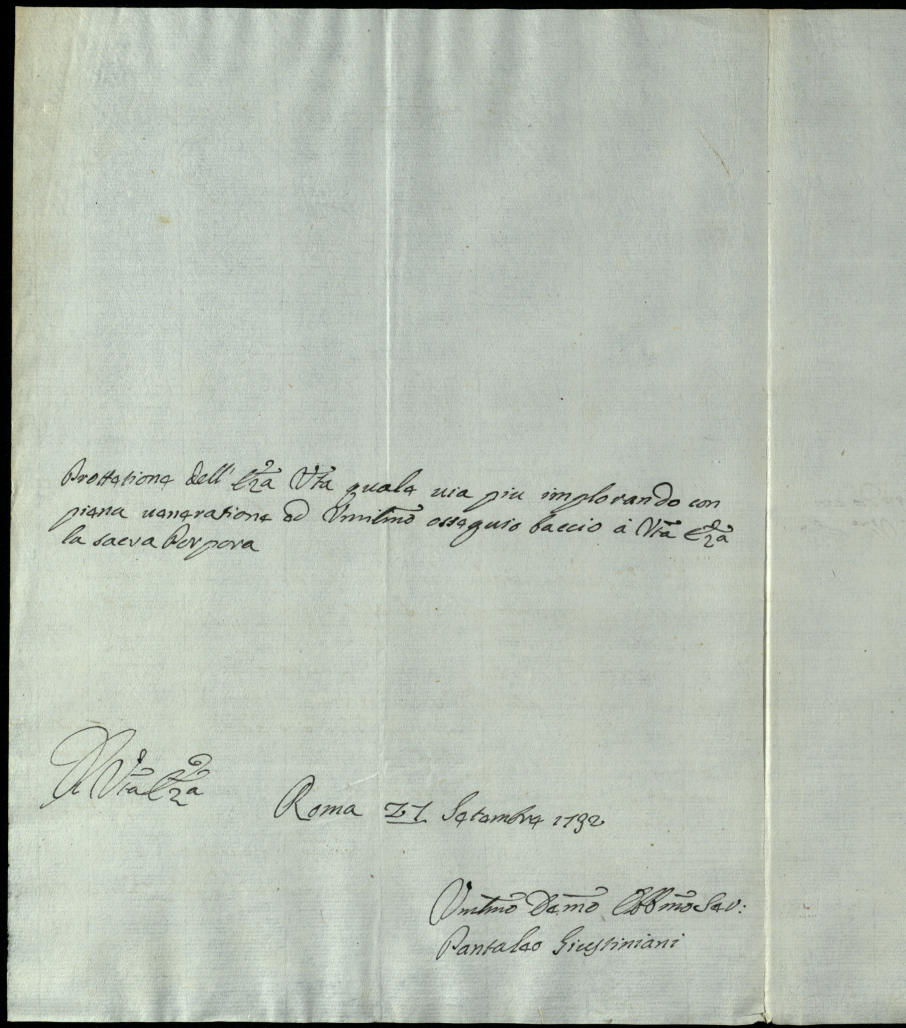 Prottetione dell' Ecc.za V͞ra quale via piu implorando con
piena veneratione ed Umil͞mo ossequio baccio à V͞ra Ecc.za
la sacra Porpora
Di V͞ra Ecc.za
Roma 21 Setembre 1792
Umil͞mo De͞mo Obb͞mo Ser:
Pantaleo Giustiniani